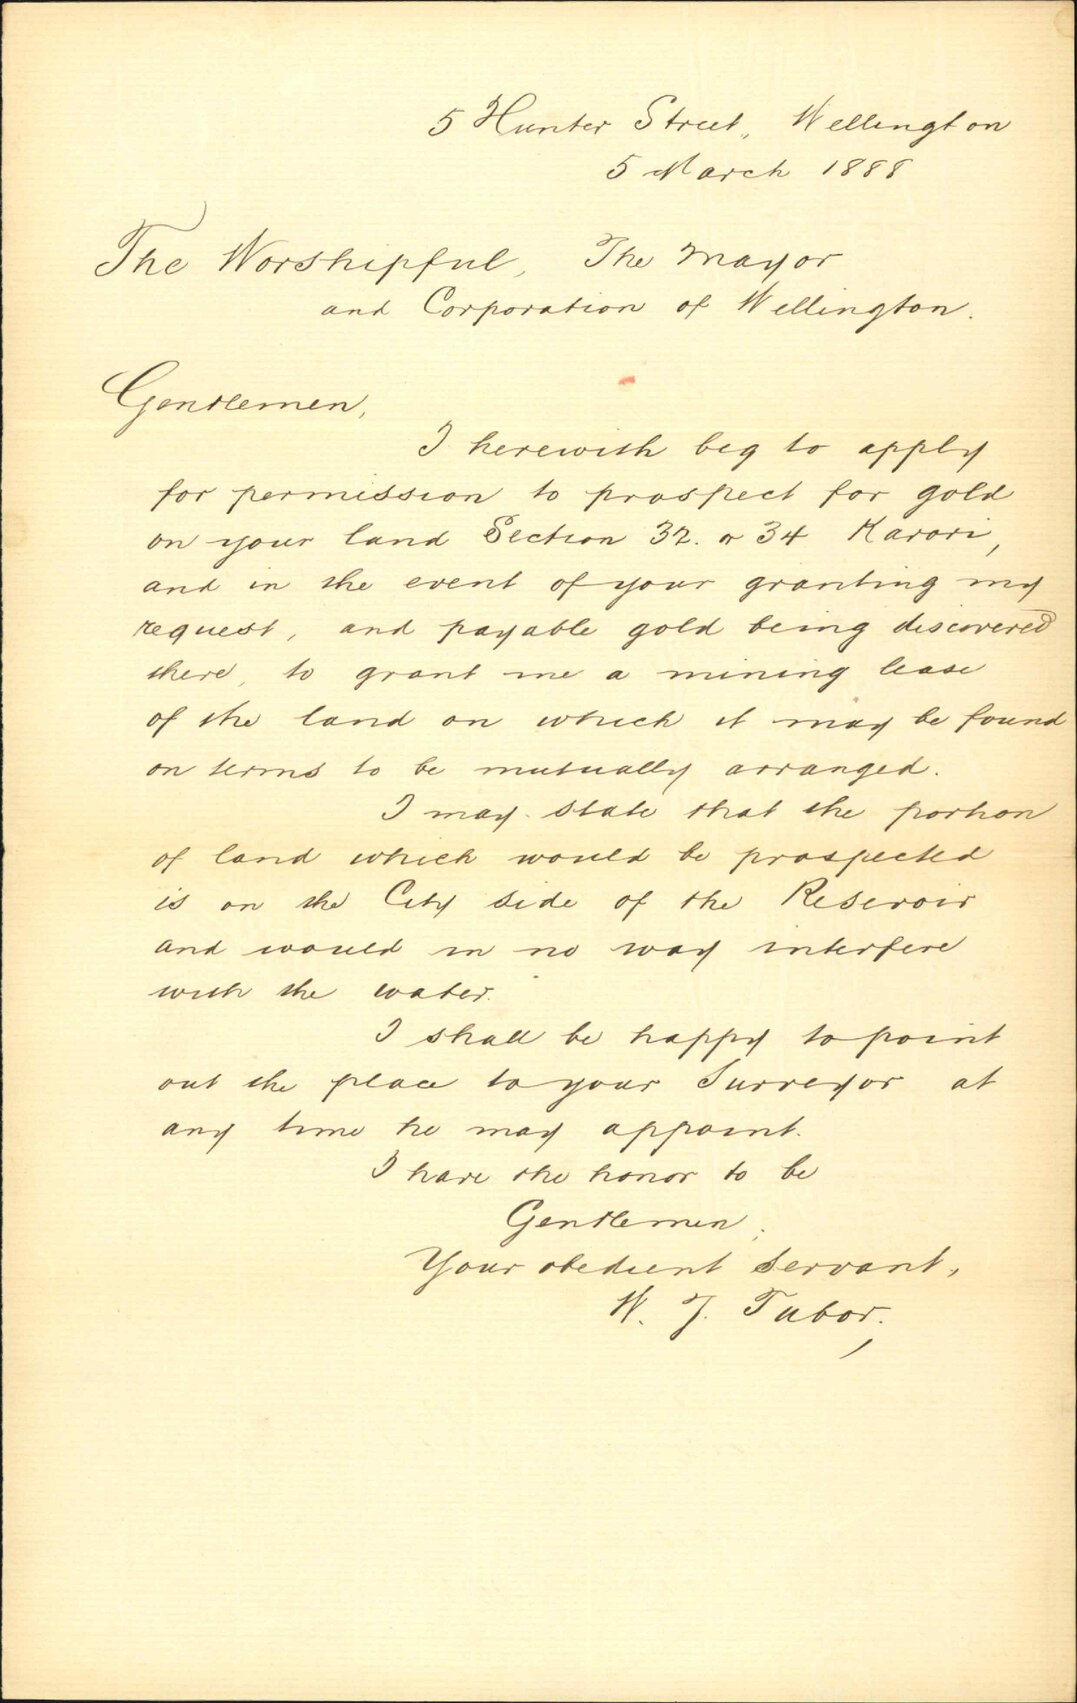 5 Hunter Street, Wellington
5 March 1888
The Worshipful, The Mayor
and Corporation of Wellington.
Gentlemen,
I herewith beg to apply
for permission to prospect for gold
on your land Section 32. or 34 Karori,
and in the event of your granting my
request, and payable gold being discovered
there, to grant me a mining lease
of the land on which it may be found
on terms to be mutually arranged.
I may state that the portion
of land which would be prospected
is on the City side of the Reservoir
and would in no way interfere
with the water.
I shall be happy to point
out the place to your Surveyor at
any time he may appoint.
I have the honor to be
Gentlemen,
Your obedient servant,
W. J. Tabor.